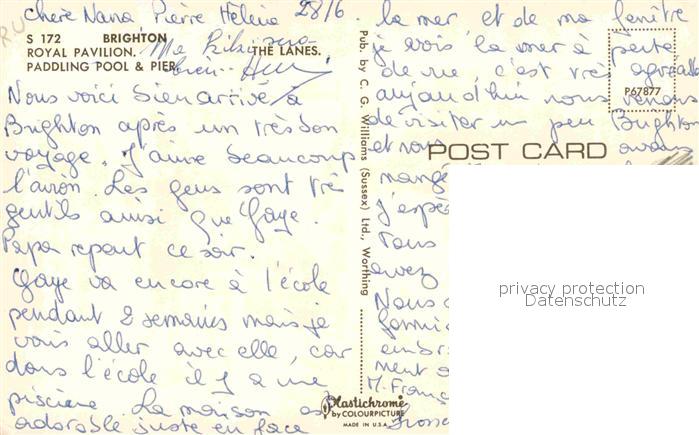 Chère Nana Pierre Hélène 28/6
S 172 BRIGHTON
ROYAL PAVILION. THE LANES.
PADDLING POOL & PIER
Nous voici bien arrivé à
Brighton après un très bon
voyage. J'aime beaucoup
l'avion. Les gens sont très
gentils ainsi que Gaye.
Papa repart ce soir.
Gaye va encore à l'école
pendant 2 semaines mais je
vais aller avec elle, car
dans l'école il y a une
piscine. La maison est
adorable juste en face
Pub. by C. G. Williams (Sussex) Ltd., Worthing
Plastichrome
by COLOURPICTURE
MADE IN U.S.A.
la mer et de ma fenêtre
je vois la mer à perte
de vue, c'est très agréable
aujourd'hui nous venons
de visiter un peu Brighton
et nous avons
P67877
POST CARD
mangé
J'espè
vous
avez
Nous
formid
embra
ment
M. Franç
Grosse
privacy protection
Datenschutz